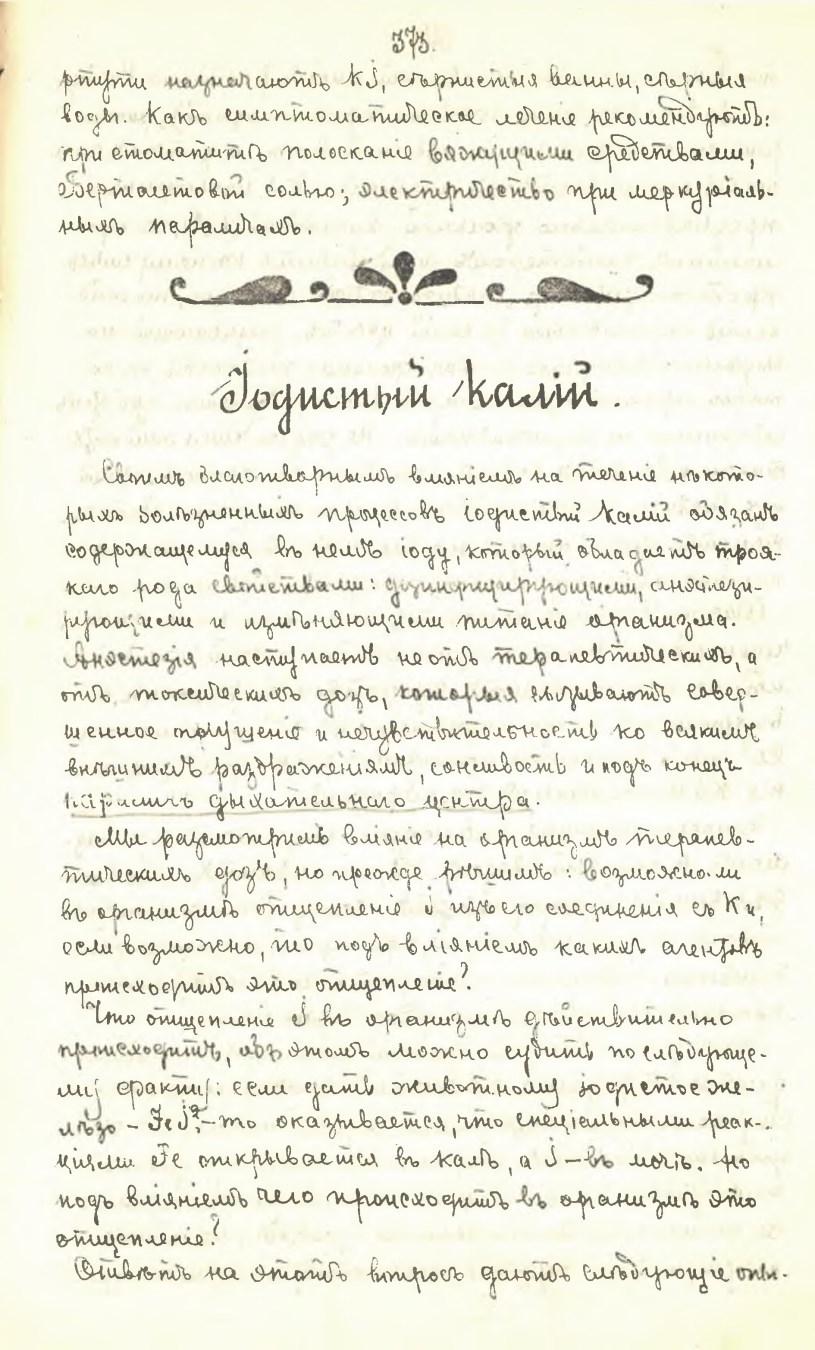 373.
ртути назначаютъ KJ, сѣрнистыя ванны, сѣрныя
воды. Какъ симптоматическое леченіе рекомендуютъ:
при стоматитѣ полосканіе вяжущими средствами,
Бертолетовой солью; электричество при меркуріаль-
ныхъ параличахъ.
Іодистый Калій.
Своимъ благотворнымъ вліяніемъ на теченіе нѣкото-
рыхъ болѣзненныхъ процессовъ іодистый калій обязанъ
содержащемуся въ немъ іоду, который обладаетъ троя-
каго рода свойствами: дезинфицирующими, анэстези-
рующими и измѣняющими питаніе организма.
Анэстезія наступаетъ не отъ терапевтическихъ, а
отъ токсическихъ дозъ, которыя вызываютъ совер-
шенное отупѣніе и нечувствительность ко всякимъ
внѣшнимъ раздраженіямъ, сонливость и подъ конецъ
параличъ дыхательнаго центра.
Мы разсмотримъ вліяніе на организмъ терапев-
тическихъ дозъ, но прежде рѣшимъ: возможно-ли
въ организмѣ отщепленіе J изъ его соединенія съ К и,
если возможно, то подъ вліяніемъ какихъ агентовъ
происходитъ это отщепленіе?
Что отщепленіе J въ организмѣ дѣйствительно
происходитъ, объ этомъ можно судить по слѣдующе-
му факту: если дать животному іодистое же-
лѣзо – FeJ², – то оказывается, что спеціальными реак-
ціями Fe открывается въ калѣ, а J – въ мочѣ. Но
подъ вліяніемъ чего происходитъ въ организмѣ это
отщепленіе?
Отвѣтъ на этотъ вопросъ даютъ слѣдующіе опы-